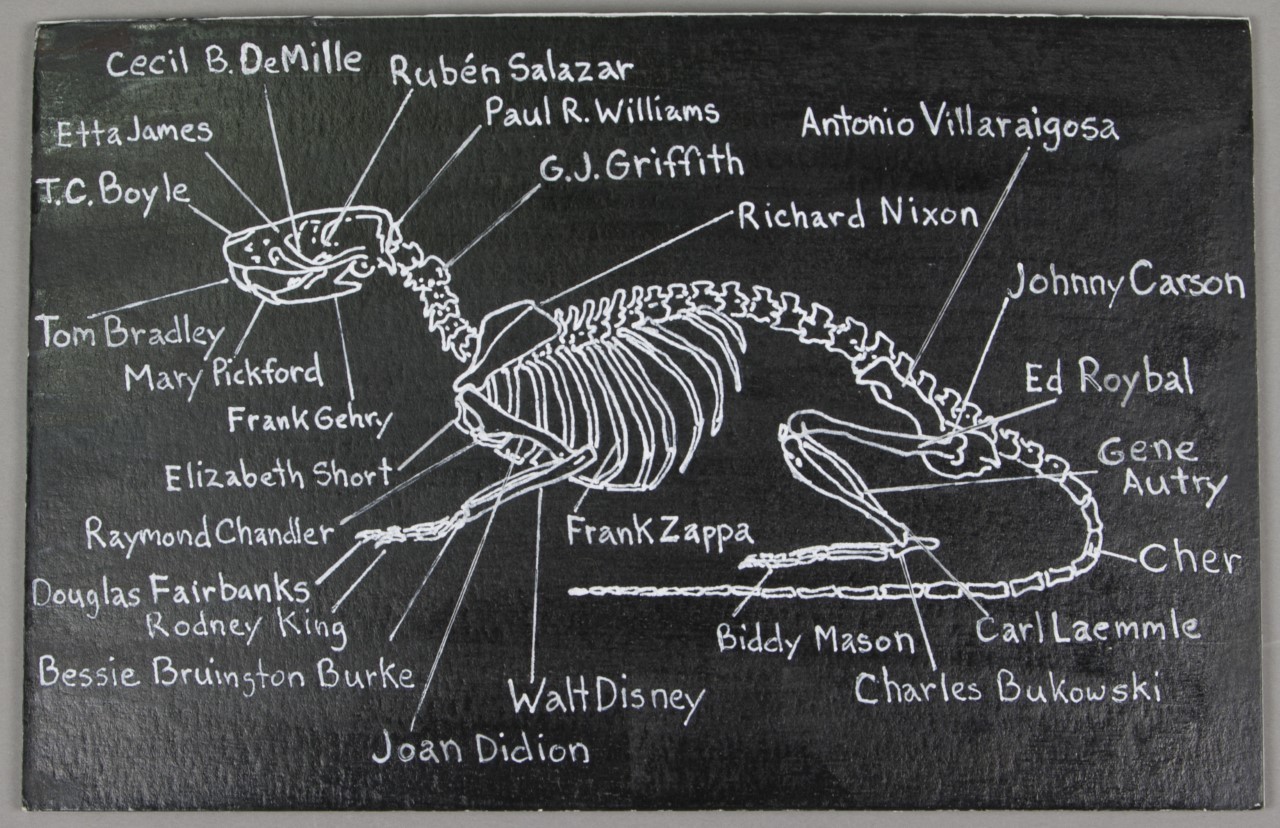 Cecil B. DeMille
Rubén Salazar
Paul R. Williams
Etta James
Antonio Villaraigosa
G.J. Griffith
T.C. Boyle
Richard Nixon
Johnny Carson
Tom Bradley
Mary Pickford
Ed Roybal
Frank Gehry
Gene
Autry
Elizabeth Short
Raymond Chandler
Frank Zappa
Cher
Douglas Fairbanks
Rodney King
Biddy Mason
Carl Laemmle
Bessie Bruington Burke
Walt Disney
Charles Bukowski
Joan Didion